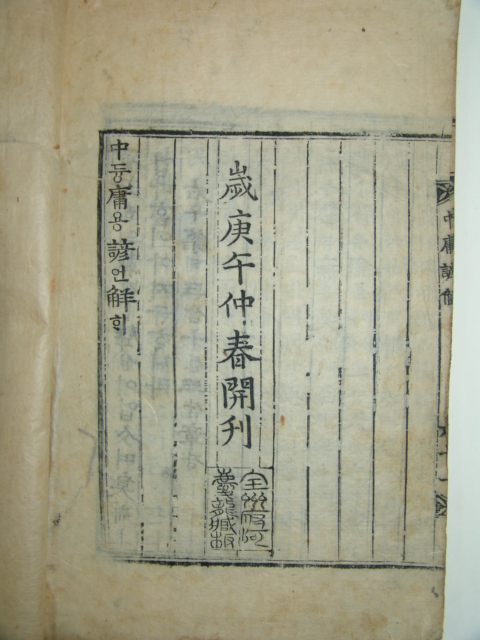 中庸諺解
歲庚午仲春開刊
全州府河
慶龍藏板
中듕庸용諺언觧ᄒᆡ